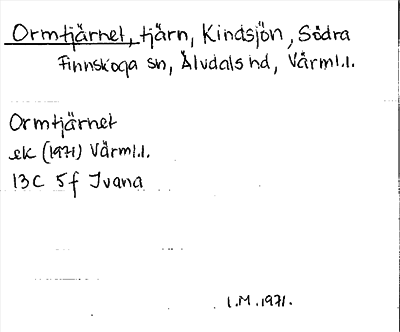 Ormtjärnet, tjärn, Kindsjön, Södra
Finnskoga sn, Älvdals hd, Värml.l.
Ormtjärnet
ek (1971) Värml.l.
13C 5f Ivana
L.M. 1971.